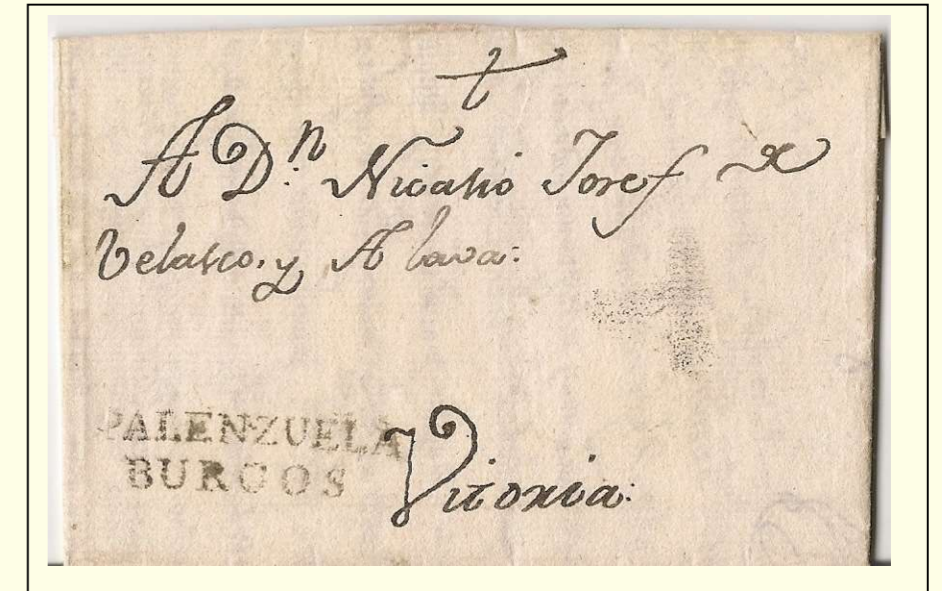 A D.ⁿ Nicasio Josef x
Velasco, y Alava:
PALENZUELA
BURGOS
Vitoria: